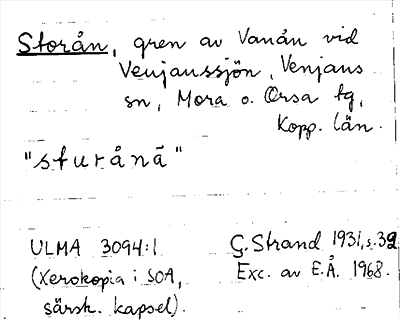 Storån, gren av Vanån vid
Venjanssjön, Venjans
sn, Mora o. Orsa tg,
Kopp. län.
"sturånã"
ULMA 3094:1
(Xerokopia i SOA,
särsk. kapsel).
G. Strand 1931, s. 39
Exc. av E.Å. 1968.